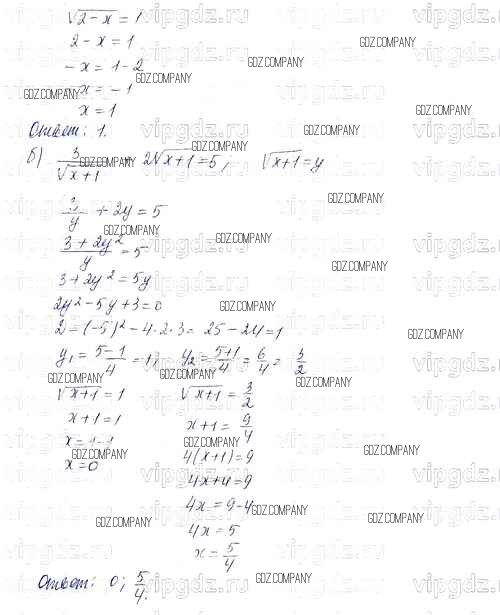 √(2-x) = 1
2 - x = 1
-x = 1 - 2
-x = -1
x = 1
Ответ: 1.
б) 3/√(x+1) + 2√(x+1) = 5; √(x+1) = y
3/y + 2y = 5
(3 + 2y²)/y = 5
3 + 2y² = 5y
2y² - 5y + 3 = 0
D = (-5)² - 4·2·3 = 25 - 24 = 1
y₁ = (5-1)/4 = 1; y₂ = (5+1)/4 = 6/4 = 3/2
√(x+1) = 1 √(x+1) = 3/2
x + 1 = 1 x + 1 = 9/4
x = 1 - 1 4(x+1) = 9
x = 0 4x + 4 = 9
4x = 9 - 4
4x = 5
x = 5/4
Ответ: 0; 5/4.
vipgdz.ru
GDZ.COMPANY